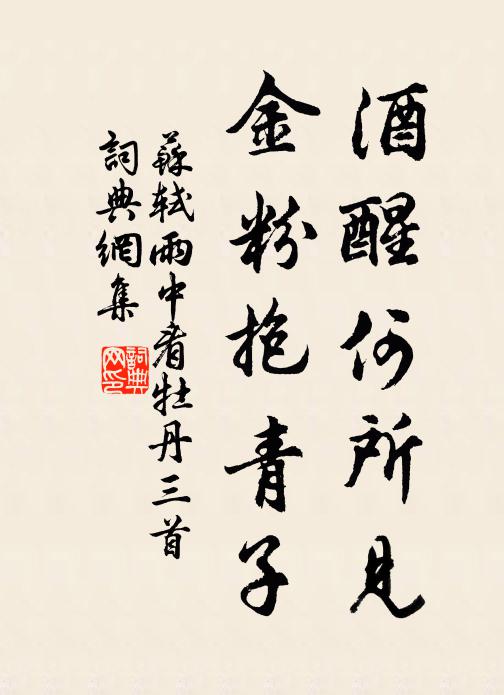 酒醒何所見
金粉抱青子
蘇軾雨中看牡丹三首
詞典網集
詞典网印